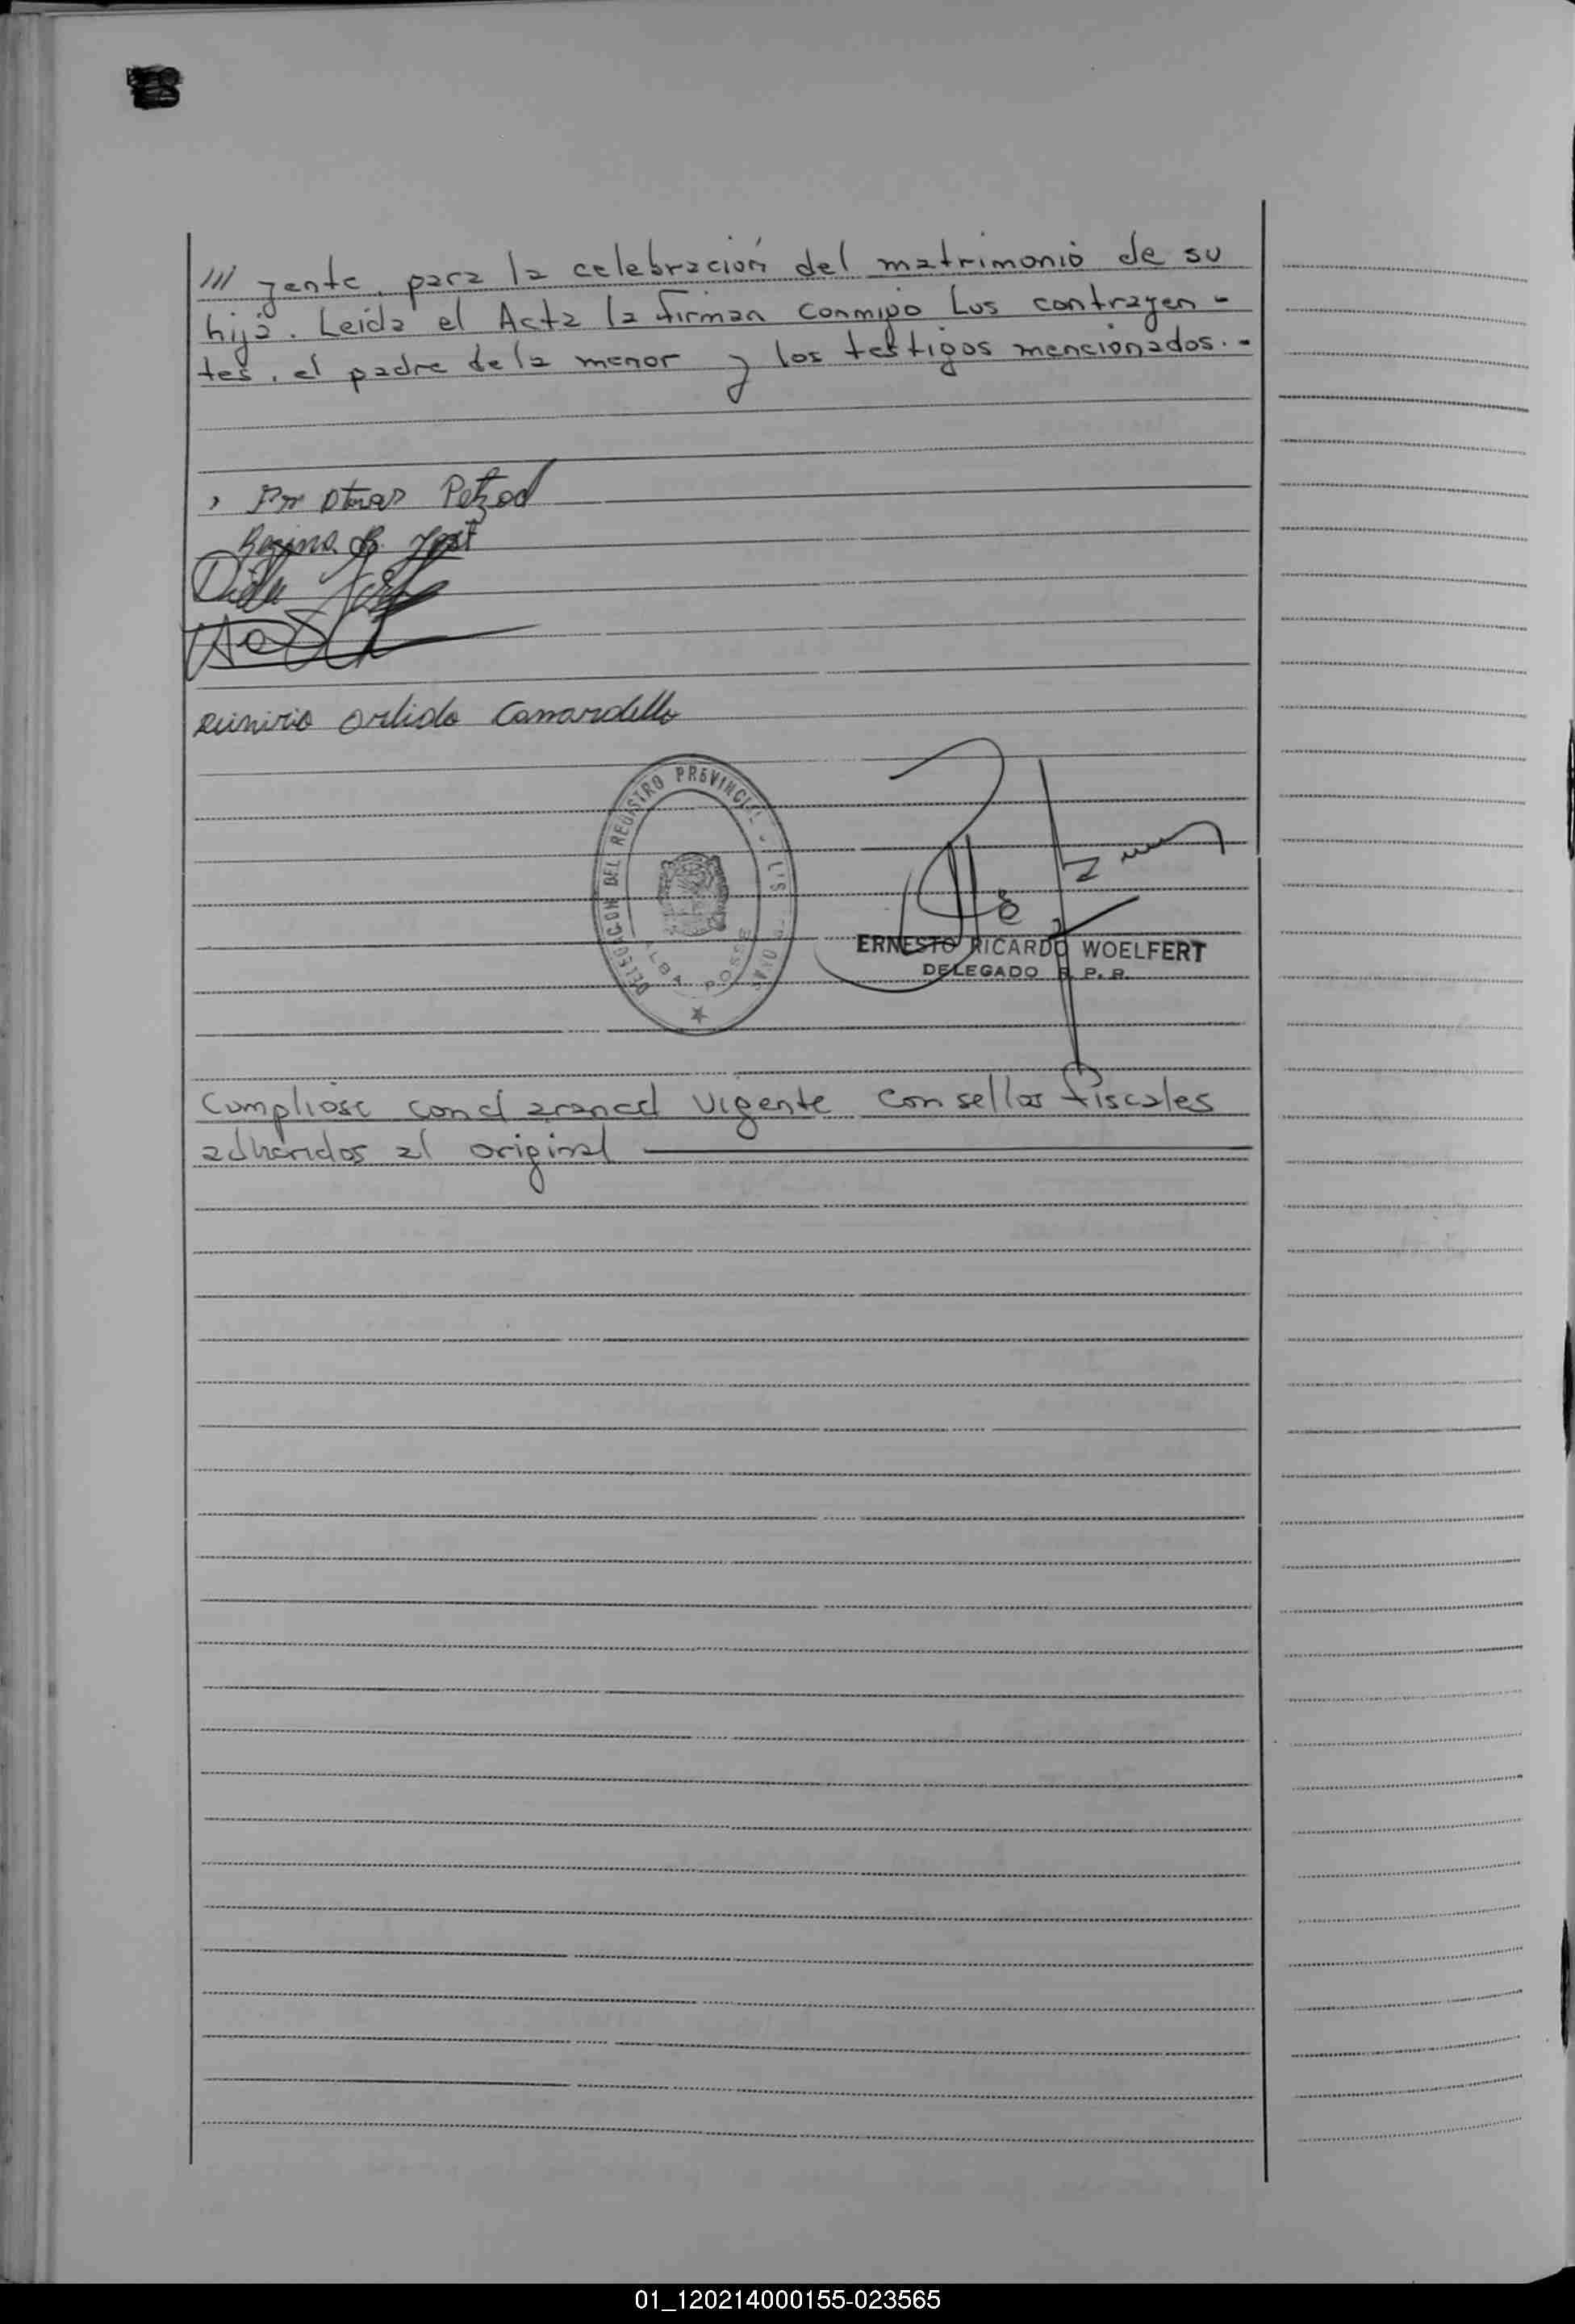 /// yente, para la celebración del matrimonio de su
hija. Leida el Acta la firman conmigo Los contrayen-
tes, el padre de la menor y los testigos mencionados.-
Petzod
Regina B. Jost
Orlido Camardello
DELEGACION DEL REGISTRO PROVINCIAL
ALBA POSSE
ERNESTO RICARDO WOELFERT
DELEGADO R. P. P.
Cumpliose con el arancel vigente con sellos fiscales
adheridos al original
01_120214000155-023565